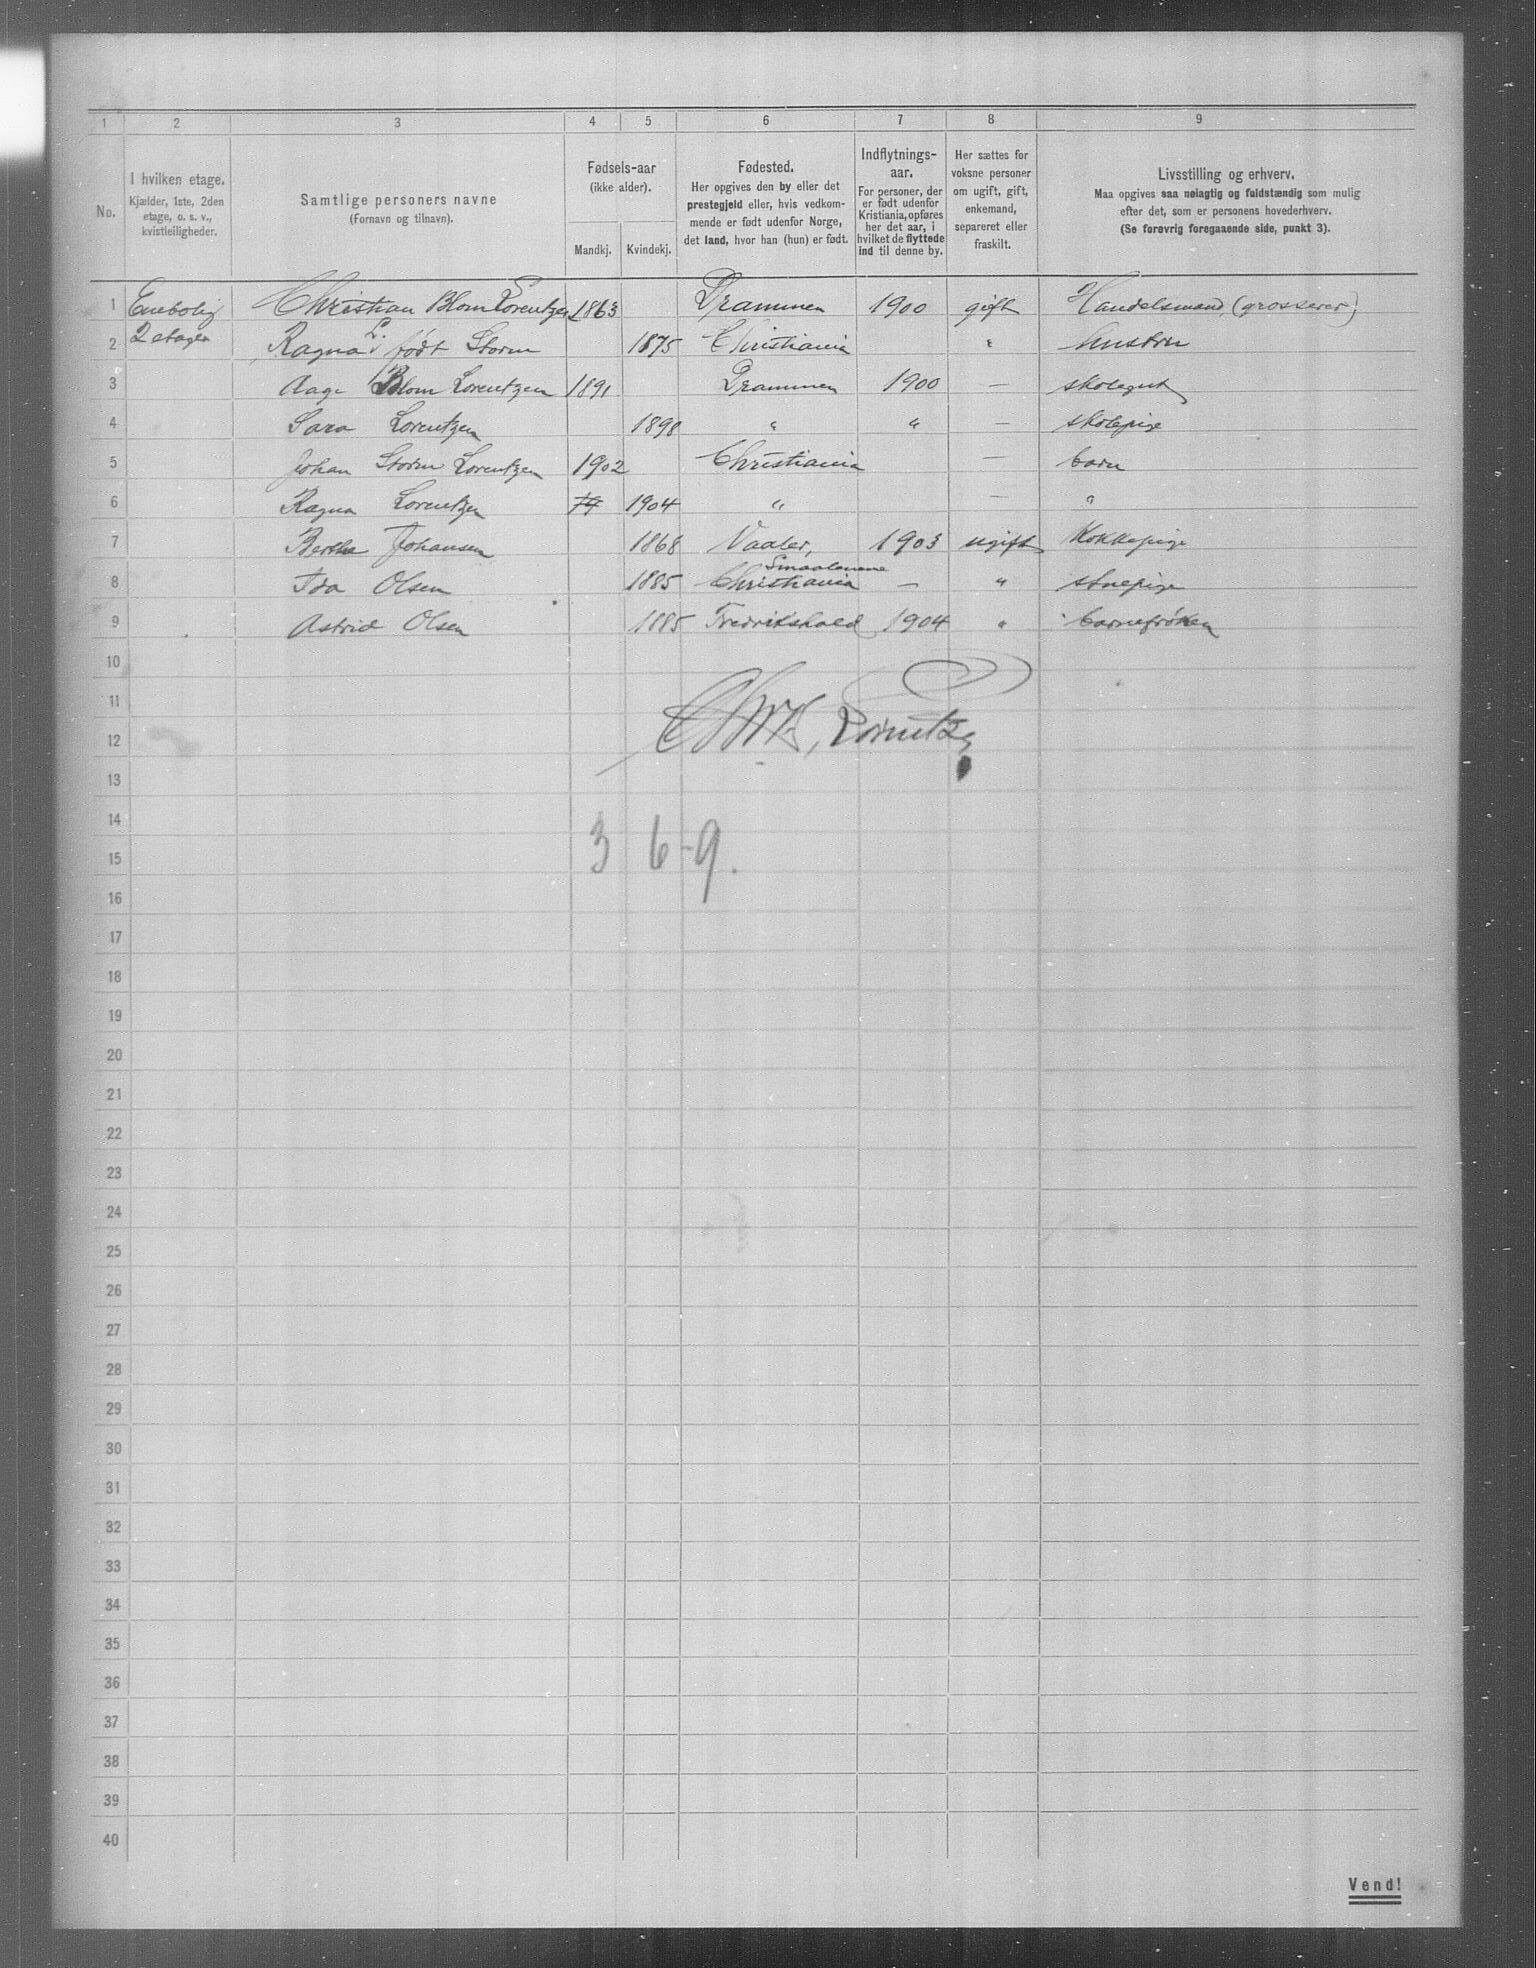 1 2 3 4 5 6 7 8 9
No.
I hvilken etage.
Kjælder, 1ste, 2den
etage, o. s. v.,
kvistleiligheder.
Samtlige personers navne
(Fornavn og tilnavn).
Fødsels-aar
(ikke alder).
Mandkj. Kvindekj.
Fødested.
Her opgives den by eller det
prestegjeld eller, hvis vedkom-
mende er født udenfor Norge,
det land, hvor han (hun) er født.
Indflytnings-
aar.
For personer, der
er født udenfor
Kristiania, opføres
her det aar, i
hvilket de flyttede
ind til denne by.
Her sættes for
voksne personer
om ugift, gift,
enkemand,
separeret eller
fraskilt.
Livsstilling og erhverv.
Maa opgives saa nøiagtig og fuldstændig som mulig
efter det, som er personens hovederhverv.
(Se forøvrig foregaaende side, punkt 3).
1 Enebolig Christian Blom Lorentzen 1863 Drammen 1900 gift Handelsmand (grosserer)
2 2 etager Ragna L. født Storm 1875 Christiania " hustru
3 Aage Blom Lorentzen 1891 Drammen 1900 — skolegut
4 Sara Lorentzen 1898 " " — skolepige
5 Johan Storm Lorentzen 1902 Christiania — barn
6 Ragna Lorentzen 1904 " — "
7 Bertha Johansen 1868 Vaaler, Smaalenene 1903 ugift Kokkepige
8 Ida Olsen 1885 Christiania — " stuepige
9 Astrid Olsen 1885 Fredrikshald 1904 " barnefrøken
10
11
12 Chr. Lorentzen
13
14
3 6 - 9.
15
16
17
18
19
20
21
22
23
24
25
26
27
28
29
30
31
32
33
34
35
36
37
38
39
40
Vend!